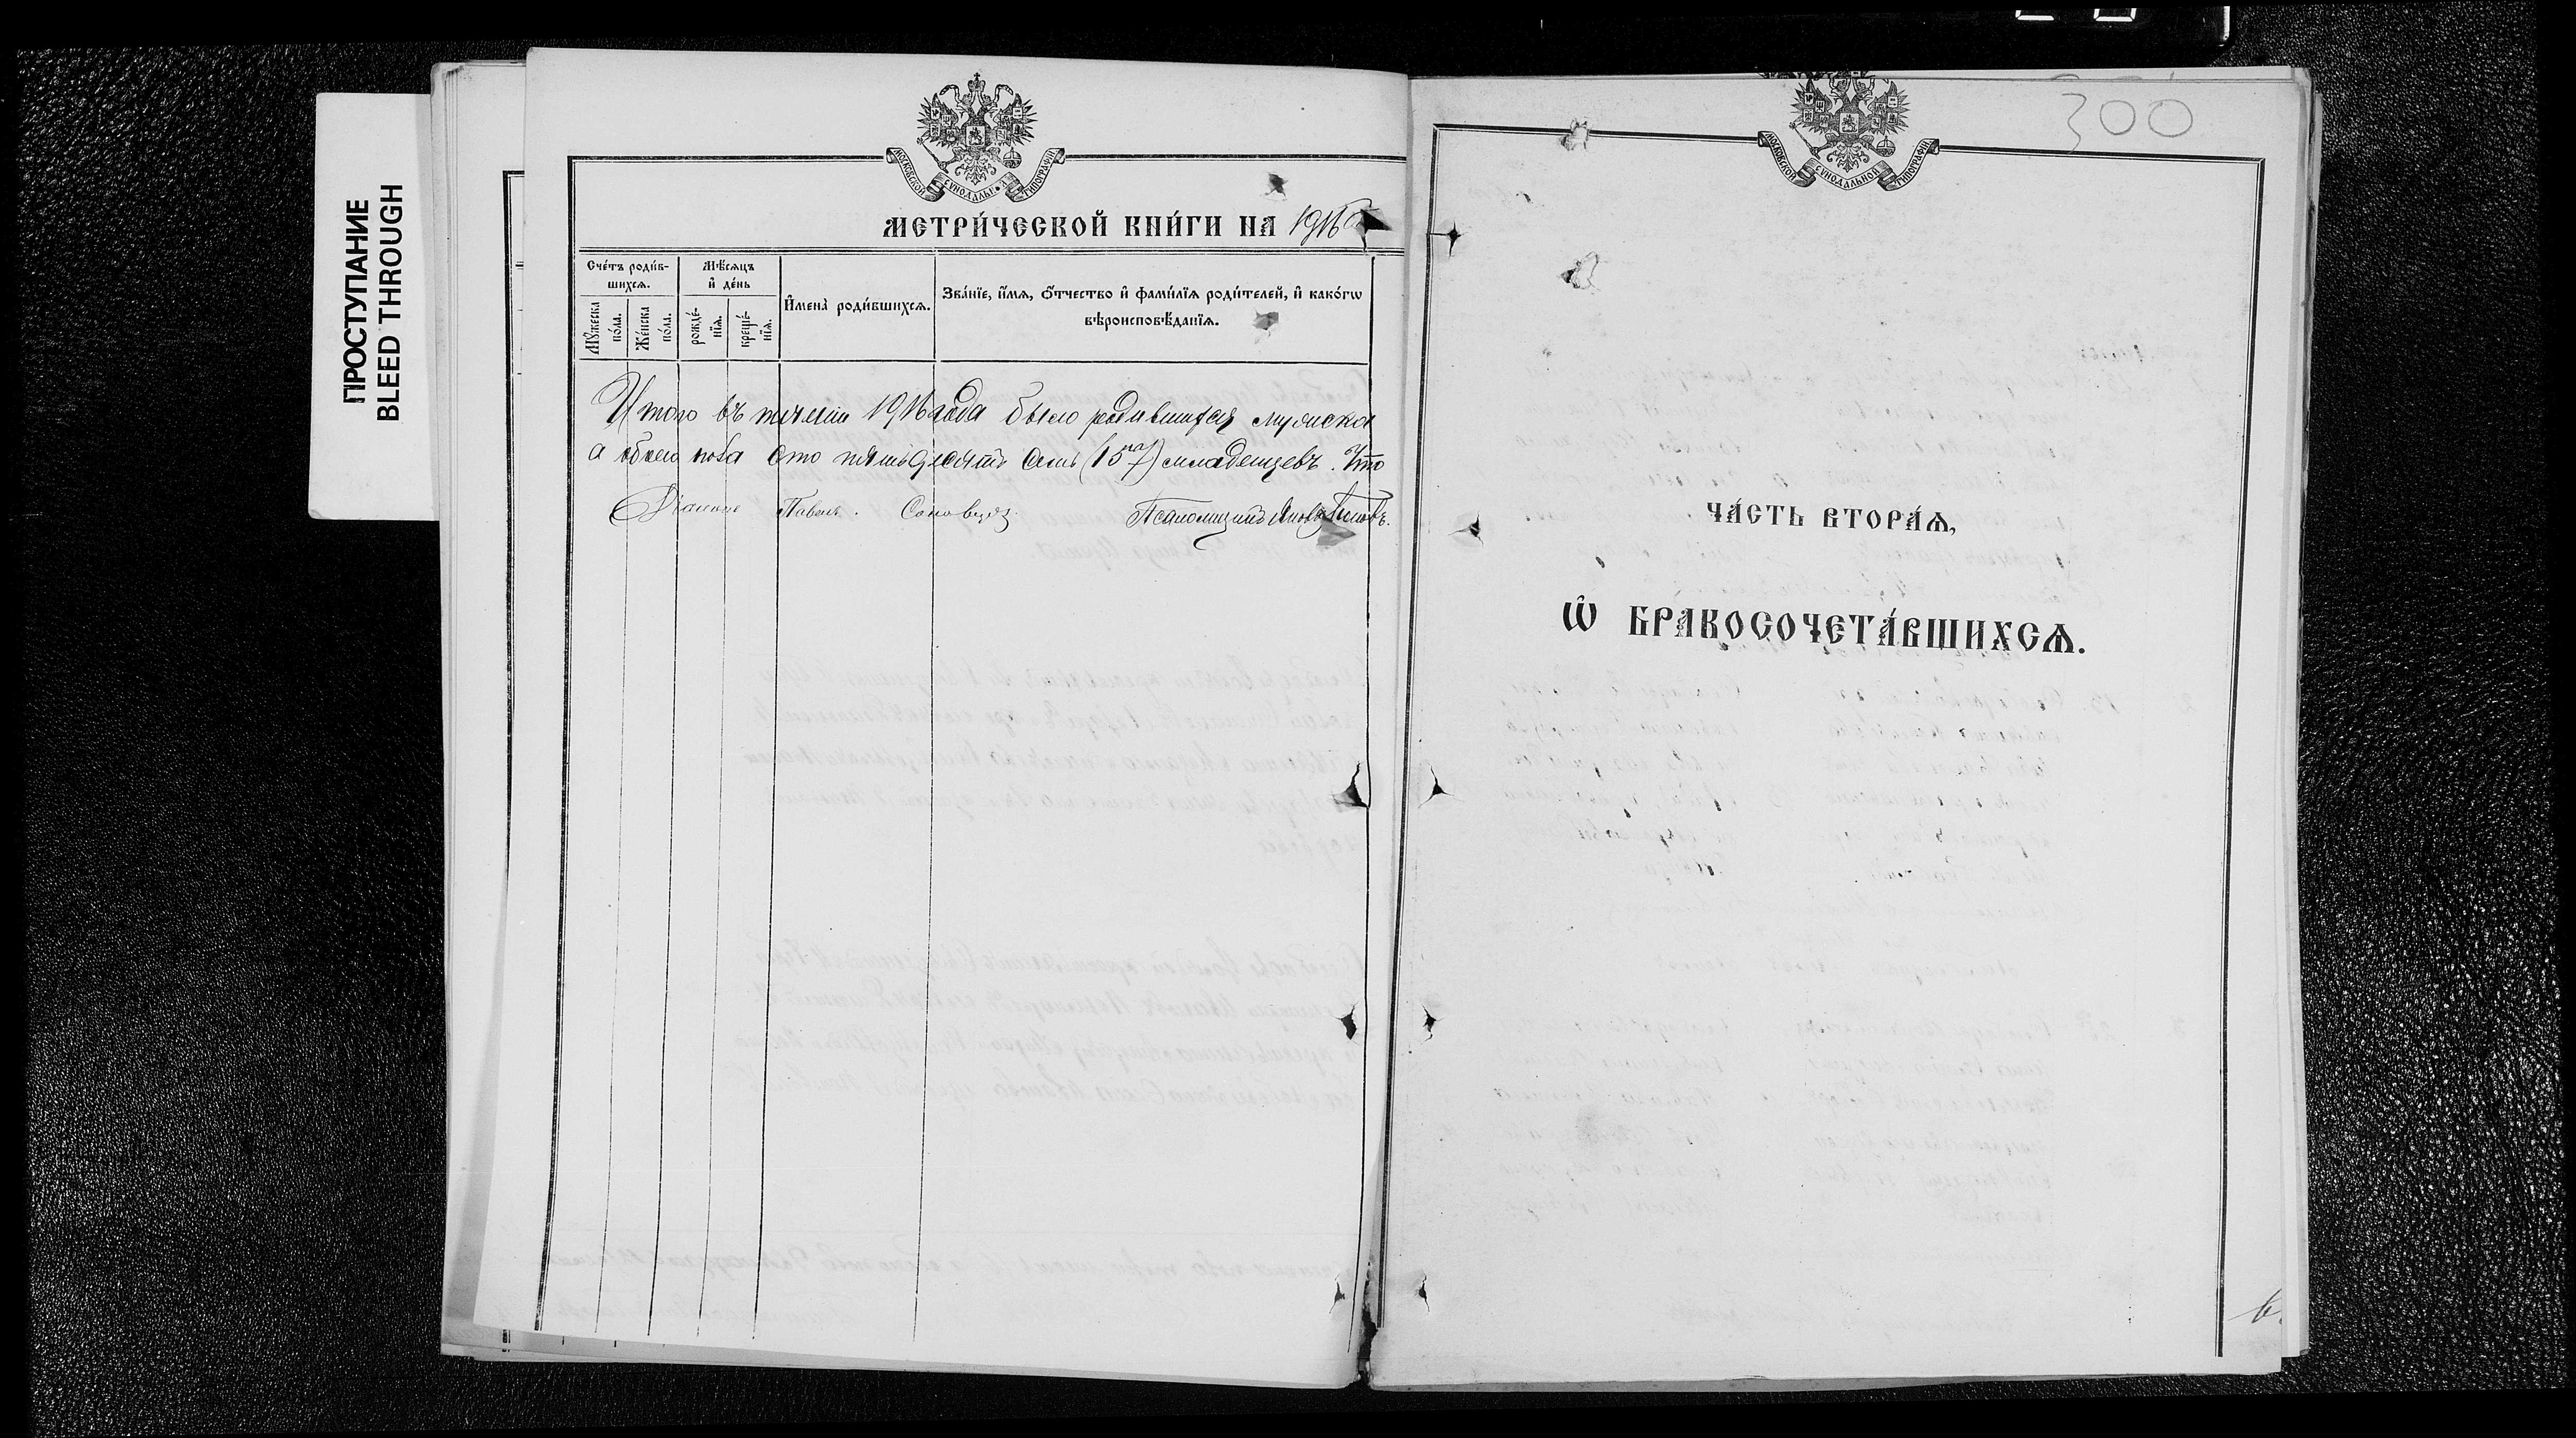 ПРОСТУПАНИЕ
BLEED THROUGH
МОСКОВСКОЙ СѴНОДАЛЬНОЙ ТИПОГРАФІИ
МЕТРИ́ЧЕСКОЙ КНИ́ГИ НА 1916
Сче́тъ роди́в-
шихсѧ.
Мѣ́сѧцъ
и҆ де́нь
Мꙋ́жеска
по́ла.
Же́нска
по́ла.
рожде́-
нїѧ.
креще́-
нїѧ.
И҆мена̀ роди́вшихсѧ.
Зва́нїе, и҆́мѧ, ѻ҆́тчество и҆ фами́лїѧ роди́телей, и҆ како́гѡ
вѣроисповѣ́данїѧ.
Итого въ течении 1916 года было родившихся мужска
а обоего пола сто пятьдесятъ семь (157) младенцевъ. Что
Павелъ Псаломщикъ
300
МОСКОВСКОЙ СѴНОДАЛЬНОЙ ТИПОГРАФІИ
ЧА́СТЬ ВТОРА́Ѧ,
Ѡ҆ БРАКОСОЧЕТА́ВШИХСѦ.